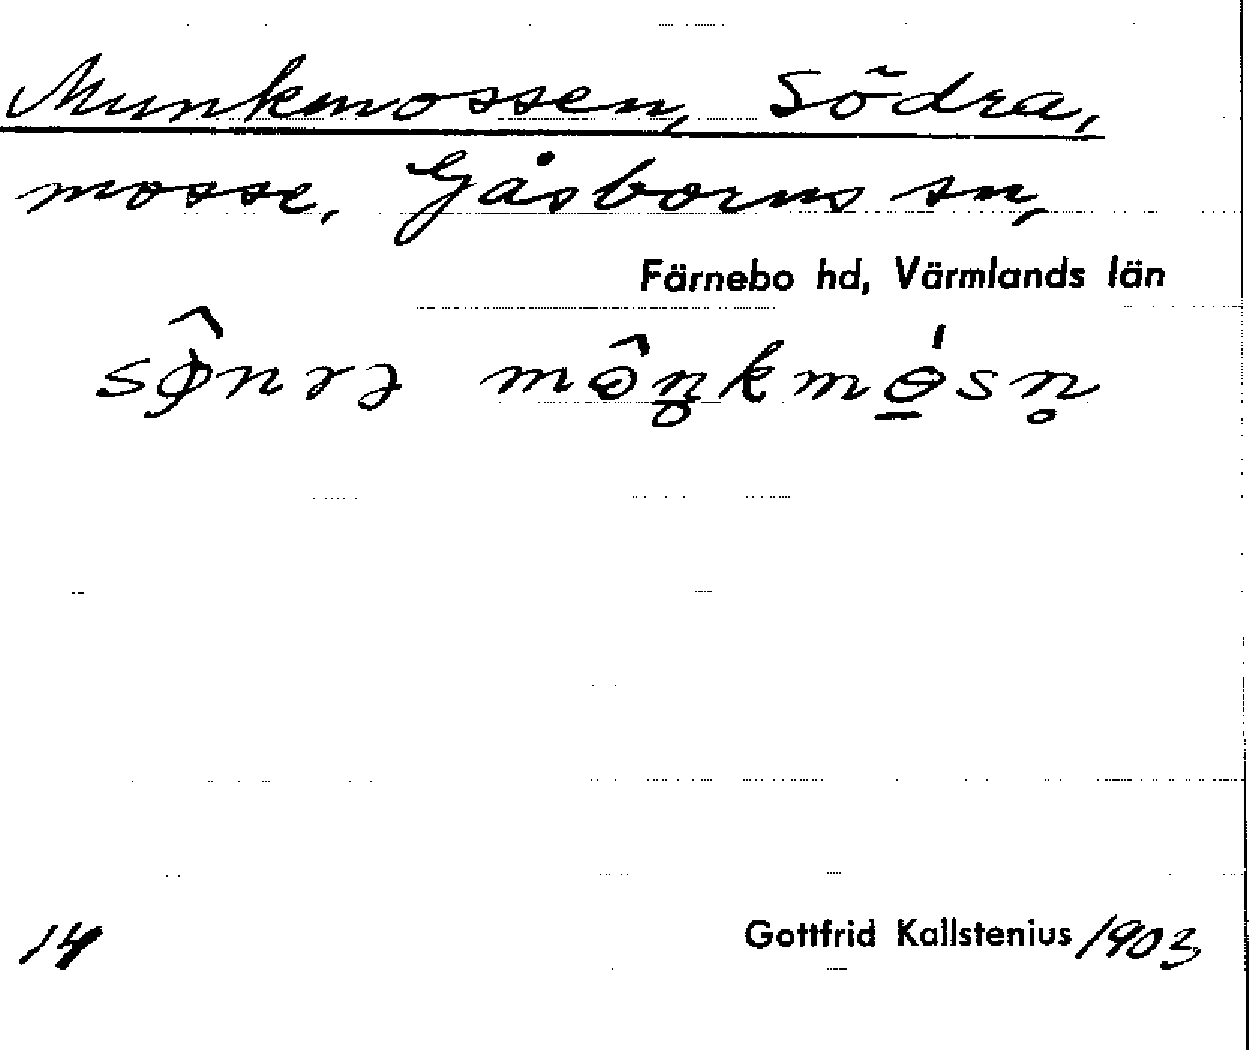 Munkmossen, Södra,
mosse, Gåsborns sn,
Färnebo hd, Värmlands län
14
Gottfrid Kallstenius /1903